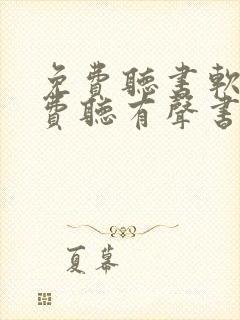 免費聽書軟
費聽有聲書
夏幕